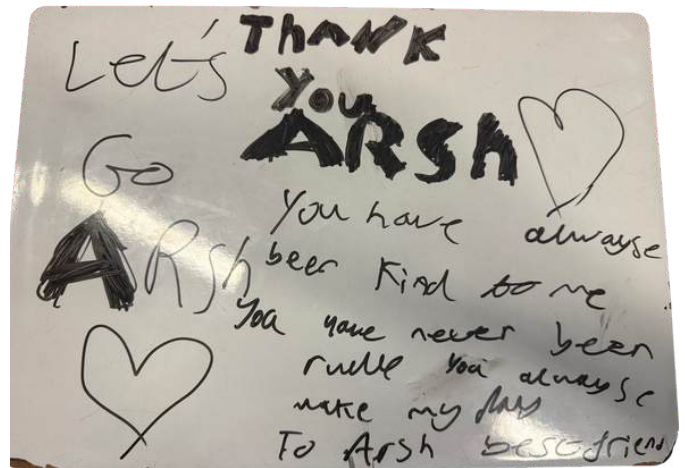 Let's
Go
ARsh
ThANK
You
ARSh
You have alwayse
been kind to me
You have never been
rude you alwayse
make my day
To Arsh best friend